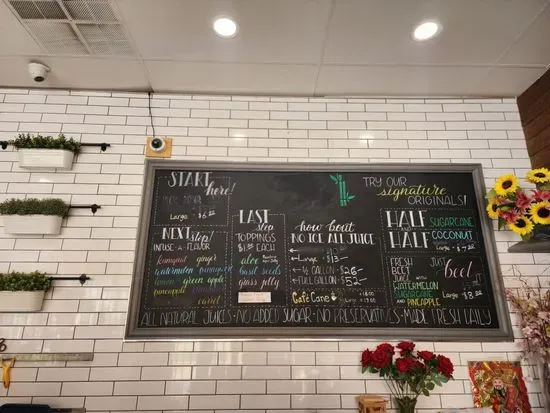 START
here!
Large - $6
NEXT
step!
INFUSE A FLAVOR
kumquat ginger
watermelon pineapple
lemon green apple
pineapple
LAST
step
TOPPINGS
$1 EACH
aloe
basil seeds
grass jelly
how bout
NO ICE ALL JUICE
Large - $13
1/2 GALLON - $26
FULL GALLON - $52
Café Cane
TRY OUR
signature
ORIGINALS!
HALF
and
HALF
SUGARCANE
COCONUT
Large - $7
FRESH
BEET
JUICE WITH
WATERMELON
SUGARCANE
AND PINEAPPLE
JUST
beet
it
Large $8
ALL NATURAL JUICES - NO ADDED SUGAR - NO PRESERVATIVES - MADE FRESH DAILY